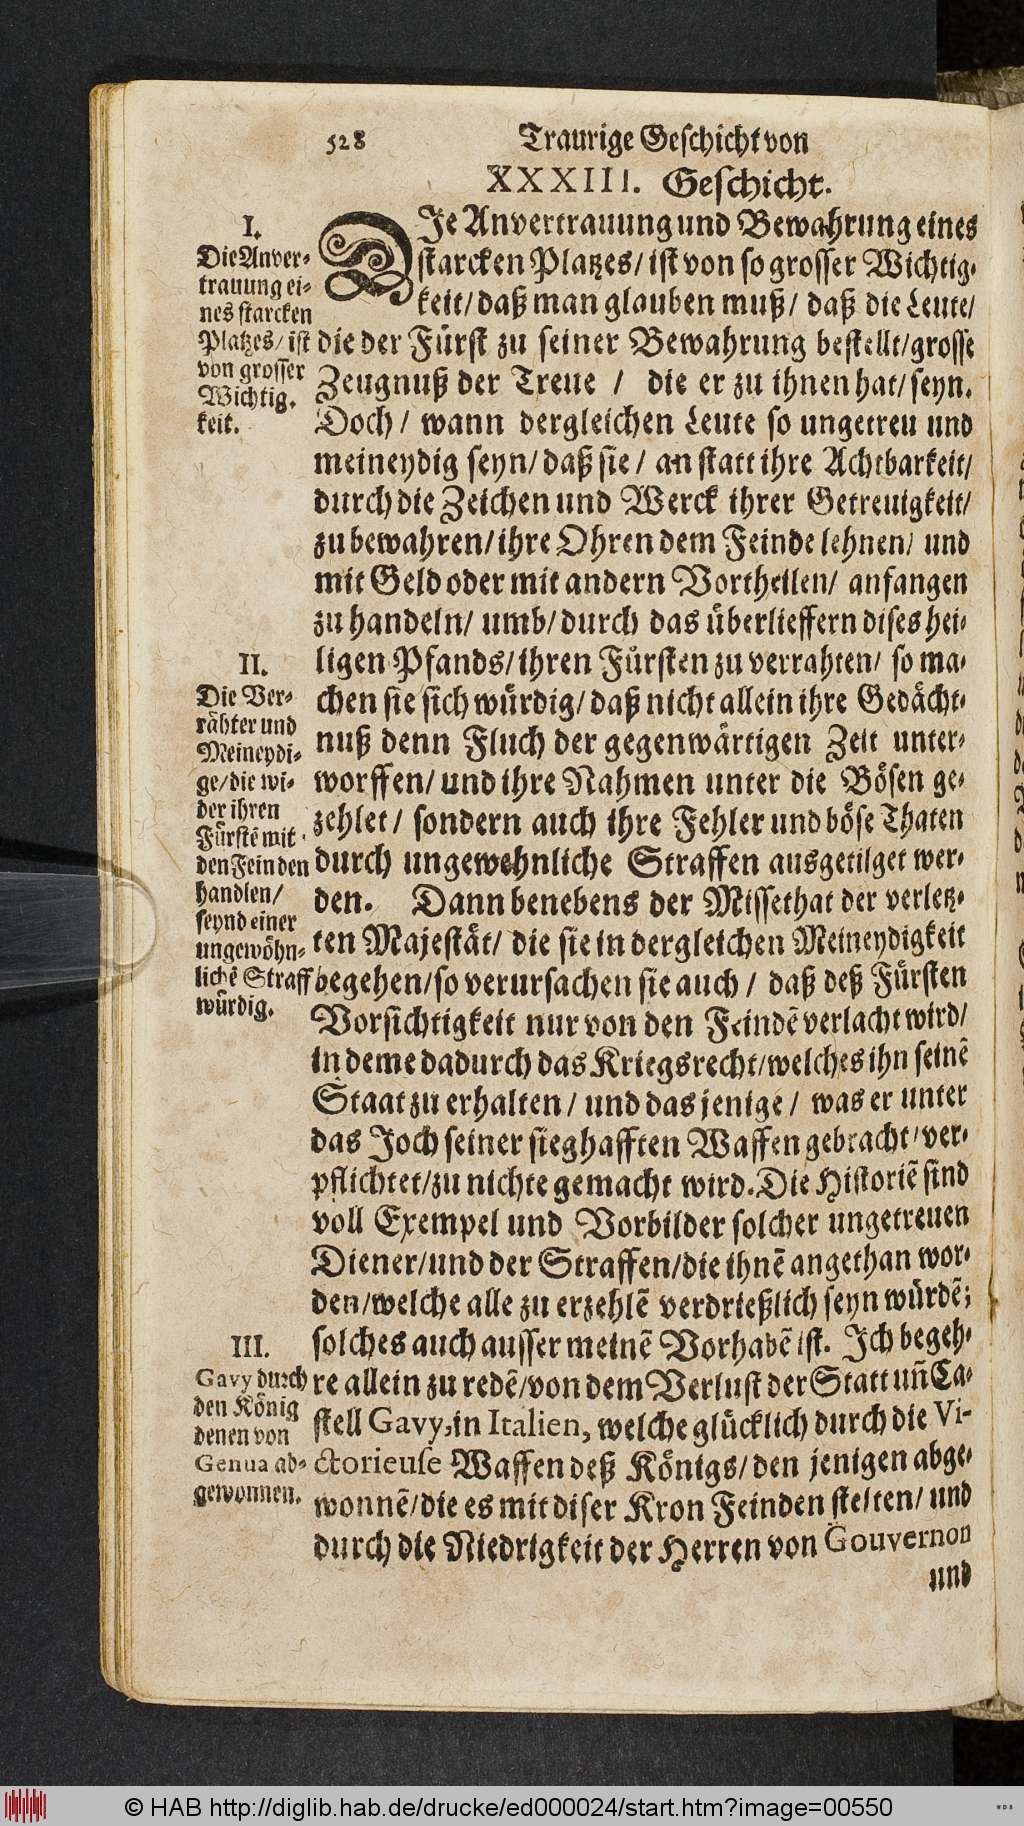 528 Traurige Geschicht von
XXXIII. Geschicht.
I.
Die Anver-
trauung ei-
nes starcken
Platzes/ ist
von grosser
Wichtig-
keit.
DIe Anvertrauung und Bewahrung eines
starcken Platzes/ ist von so grosser Wichtig-
keit/ daß man glauben muß/ daß die Leute/
die der Fürst zu seiner Bewahrung bestellt/ grosse
Zeugnuß der Treue / die er zu ihnen hat/ seyn.
Doch/ wann dergleichen Leute so ungetreu und
meineydig seyn/ daß sie/ an statt ihre Achtbarkeit/
durch die Zeichen und Werck ihrer Getreuigkeit/
zu bewahren/ ihre Ohren dem Feinde lehnen/ und
mit Geld oder mit andern Vortheilen/ anfangen
zu handeln/ umb/ durch das überlieffern dises hei-
II.
Die Ver-
rähter und
Meineydi-
ge/ die wi-
der ihren
Fürstē mit
den Feinden
handlen/
seynd einer
ungewöhn-
lichē Straff
würdig.
ligen Pfands/ ihren Fürsten zu verrahten/ so ma-
chen sie sich würdig/ daß nicht allein ihre Gedächt-
nuß denn Fluch der gegenwärtigen Zeit unter-
worffen/ und ihre Nahmen unter die Bösen ge-
zehlet/ sondern auch ihre Fehler und böse Thaten
durch ungewehnliche Straffen ausgetilget wer-
den. Dann benebens der Missethat der verletz-
ten Majestät/ die sie in dergleichen Meineydigkeit
begehen/ so verursachen sie auch/ daß deß Fürsten
Vorsichtigkeit nur von den Feindē verlacht wird/
in deme dadurch das Kriegsrecht/ welches ihn seinē
Staat zu erhalten/ und das jenige/ was er unter
das Joch seiner sieghafften Waffen gebracht/ ver-
pflichtet/ zu nichte gemacht wird. Die Historiē sind
voll Exempel und Vorbilder solcher ungetreuen
Diener/ und der Straffen/ die ihnē angethan wor-
den/ welche alle zu erzehlē verdrießlich seyn würdē;
solches auch ausser meinē Vorhabē ist. Ich begeh-
III.
Gavy durch
den König
denen von
Genua ab-
gewonnen.
re allein zu redē/ von dem Verlust der Statt uñ Ca-
stell Gavy, in Italien, welche glücklich durch die Vi-
ctorieuse Waffen deß Königs/ den jenigen abge-
wonnē/ die es mit diser Kron Feinden stelten/ und
durch die Niedrigkeit der Herren von Gouvernon
und
© HAB http://diglib.hab.de/drucke/ed000024/start.htm?image=00550